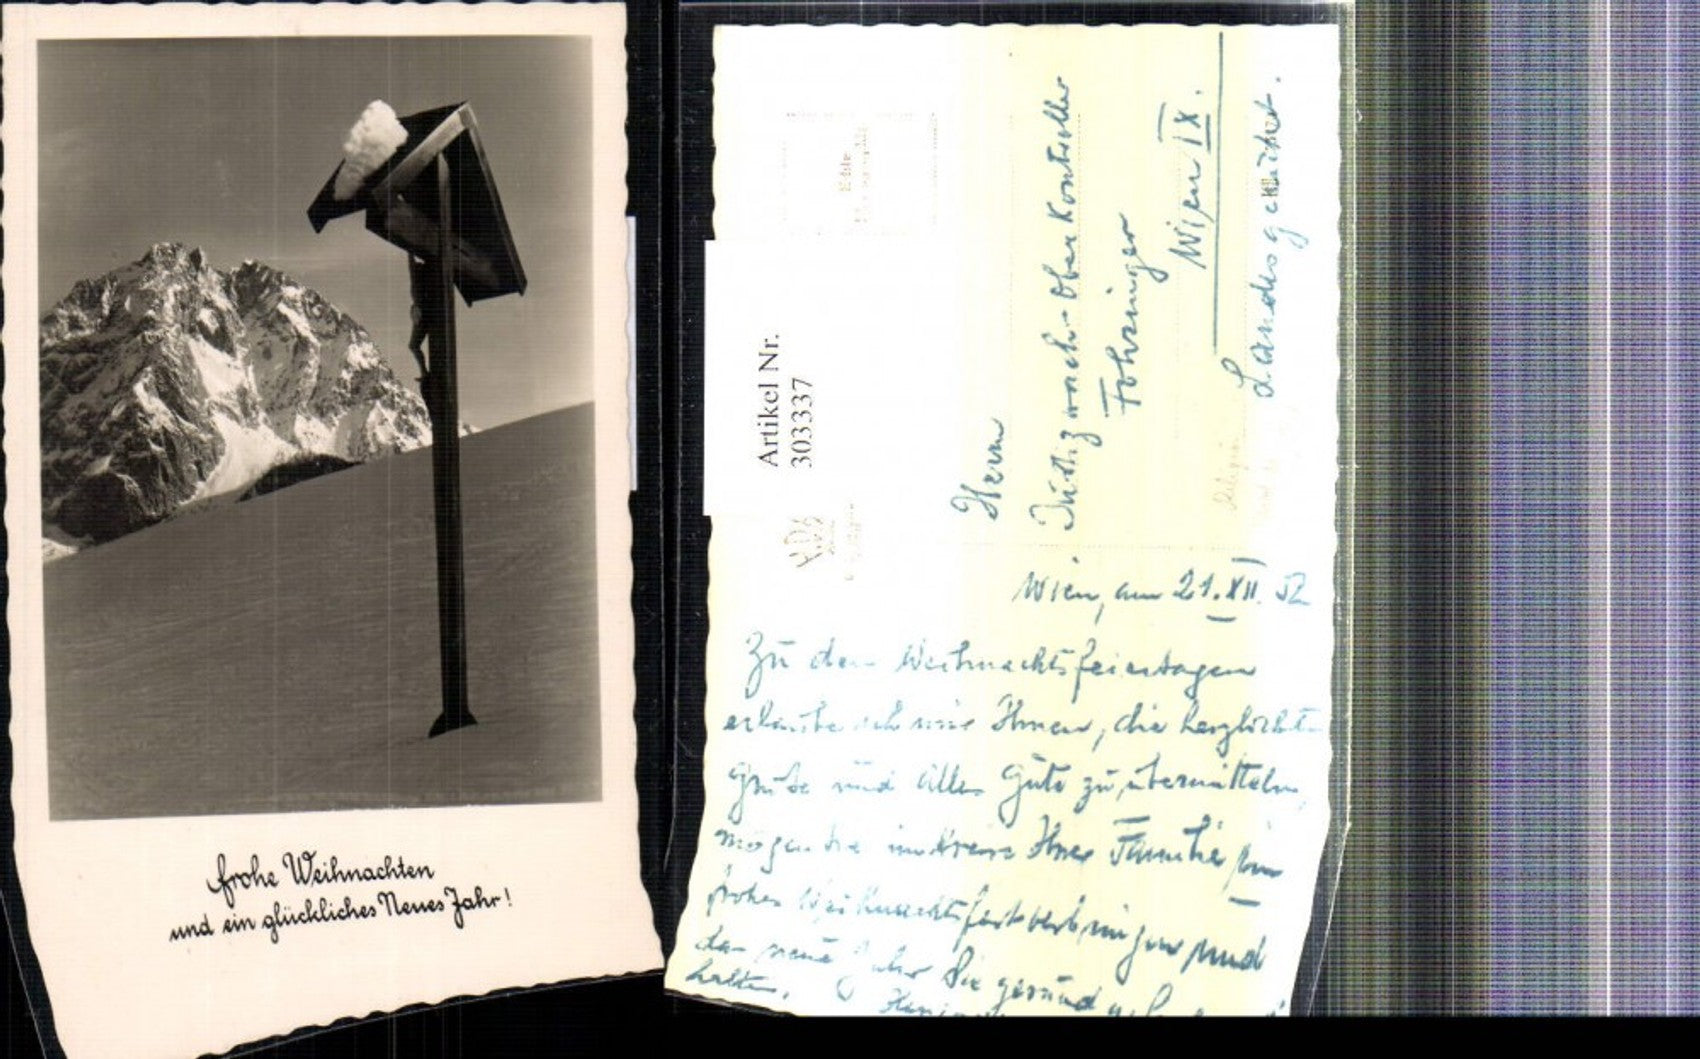 frohe Weihnachten
und ein glückliches Neues Jahr!
Artikel Nr.
303337
Herrn
Justizwach-Oberkontroller
Fohringer
Wien IX.
Landesgericht.
Wien, am 21. XII. 52
Zu den Weihnachtsfeiertagen
erlaube ich mir Ihnen, die herzlichsten
Grüße und alles Gute zu übermitteln,
mögen Sie im Kreise Ihrer Familie ein
frohes Weihnachtsfest verbringen und
das neue Jahr Sie gesund
halten.